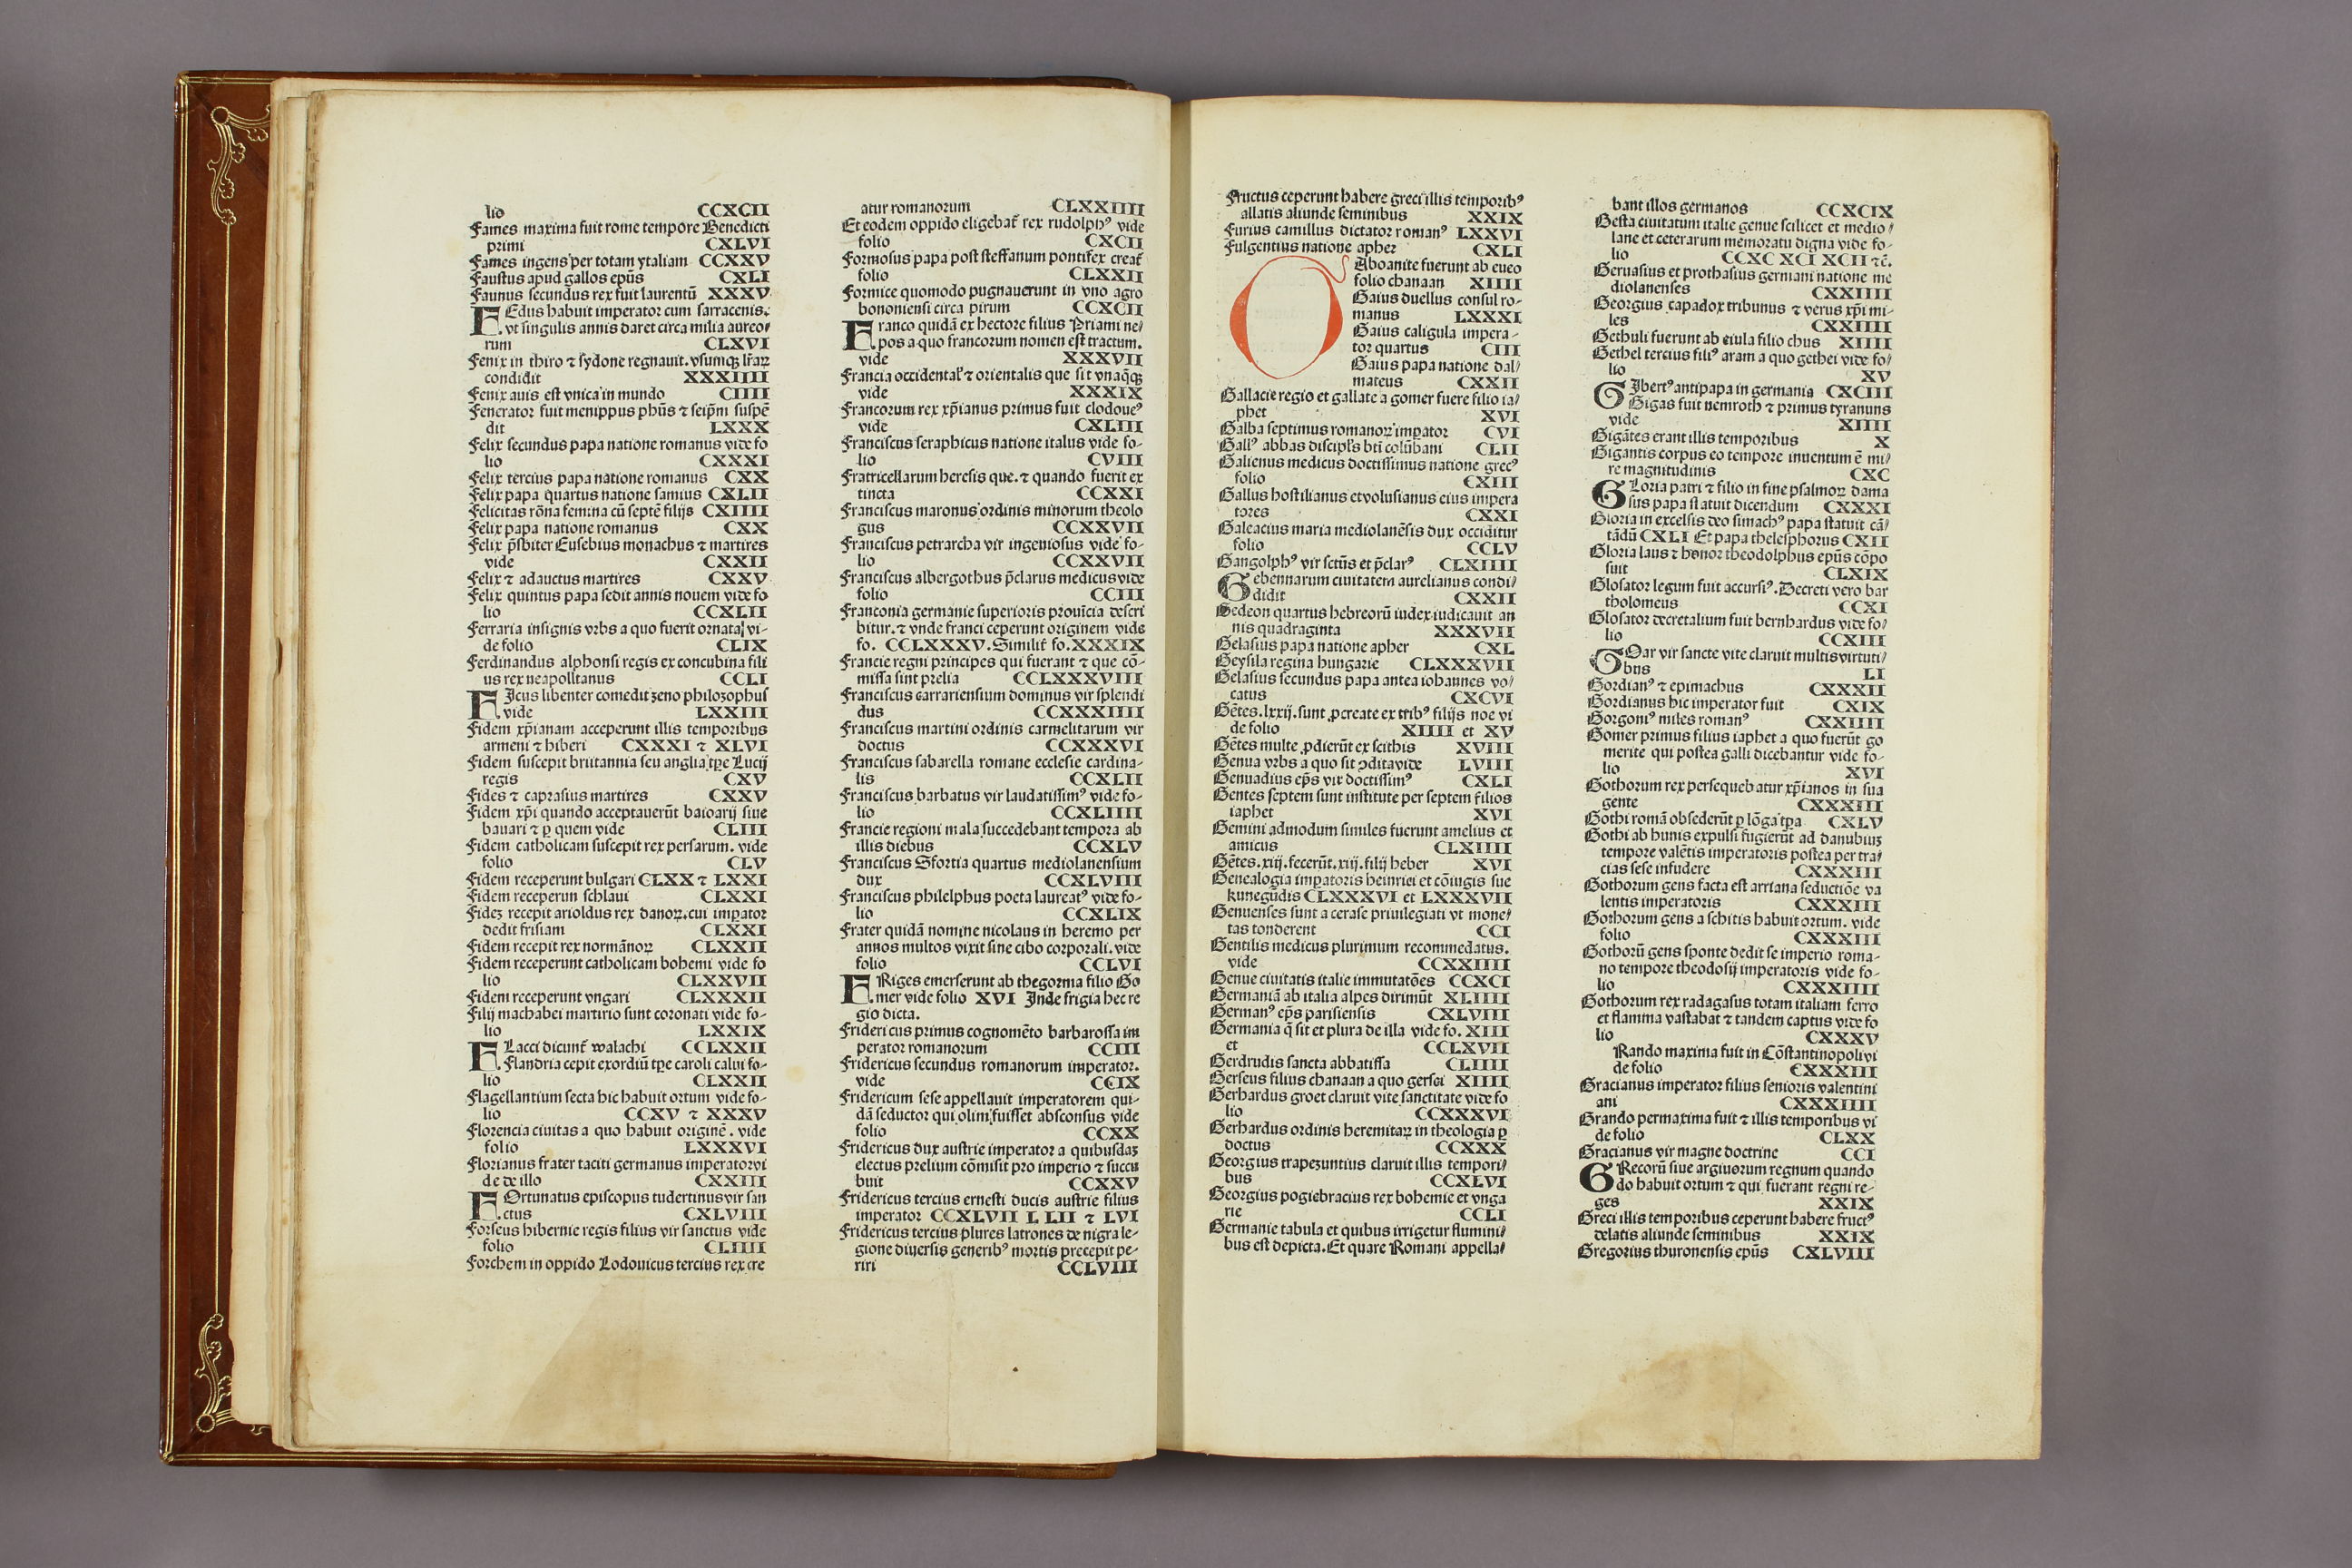 lio CCXCII
Fames maxima fuit rome tempore Benedicti
primi CXLVI
Fames ingens per totam ytaliam CCXXV
Faustus apud gallos epūs CXLI
Faunus secundus rex fuit laurentū XXXV
FEdus habuit imperator cum sarracenis.
vt singulis annis daret circa milia aureo⸗
rum CLXVI
Fenix in thiro ⁊ sydone regnauit. vsumqꝫ lr̄aꝝ
condidit XXXIIII
Fenix auis est vnica in mundo CIIII
Fenerator fuit menippus phūs ⁊ seip̄m suspē
dit LXXX
Felix secundus papa natione romanus vide fo
lio CXXXI
Felix tercius papa natione romanus CXX
Felix papa quartus natione samius CXLII
Felicitas rōna femina cū septē filijs CXIIII
Felix papa natione romanus CXX
Felix p̄sbiter Eusebius monachus ⁊ martires
vide CXXII
Felix ⁊ adauctus martires CXXV
Felix quintus papa sedit annis nouem vide fo
lio CCXLII
Ferraria insignis vrbs a quo fuerit ornata vi-
de folio CLIX
Ferdinandus alphonsi regis ex concubina fili
us rex neapolitanus CCLI
FIcus libenter comedit zeno philozophus
vide LXXIII
Fidem xp̄ianam acceperunt illis temporibus
armeni ⁊ hiberi CXXXI ⁊ XLVI
Fidem suscepit britannia seu anglia tp̄e Lucij
regis CXV
Fides ⁊ caprasius martires CXXV
Fidem xp̄i quando acceptauerūt baioarij siue
bauari ⁊ ꝑ quem vide CLIII
Fidem catholicam suscepit rex persarum. vide
folio CLV
Fidem receperunt bulgari CLXX ⁊ LXXI
Fidem receperun schlaui CLXXI
Fidez recepit arioldus rex danoꝝ. cui imꝑator
dedit frisiam CLXXI
Fidem recepit rex normānoꝝ CLXXII
Fidem receperunt catholicam bohemi vide fo
lio CLXXVII
Fidem receperunt vngari CLXXXII
Filij machabei martirio sunt coronati vide fo-
lio LXXIX
FLacci dicunt̄ walachi CCLXXII
Flandria cepit exordiū tp̄e caroli calui fo-
lio CLXXII
Flagellantium secta hic habuit ortum vide fo-
lio CCXV ⁊ XXXV
Florencia ciuitas a quo habuit originē. vide
folio LXXXVI
Florianus frater taciti germanus imperator vi
de de illo CXXIII
FOrtunatus episcopus tudertinus vir san
ctus CXLVIII
Forseus hibernie regis filius vir sanctus vide
folio CLIIII
Forchem in oppido Lodouicus tercius rex cre
atur romanorum CLXXIIII
Et eodem oppido eligebat̄ rex rudolphꝰ vide
folio CXCII
Formosus papa post steffanum pontifex creat̄
folio CLXXII
Formice quomodo pugnauerunt in vno agro
bononiensi circa pirum CCXCII
Franco quidā ex hectore filius Priami ne⸗
pos a quo francorum nomen est tractum.
vide XXXVII
Francia occidental' ⁊ orientalis que sit vnaq̄qꝫ
vide XXXIX
Francorum rex xp̄ianus primus fuit clodoueꝰ
vide CXLIII
Franciscus seraphicus natione italus vide fo-
lio CVIII
Fratricellarum heresis que. ⁊ quando fuerit ex
tincta CCXXI
Franciscus maronus ordinis minorum theolo
gus CCXXVII
Franciscus petrarcha vir ingeniosus vide fo-
lio CCXXVII
Franciscus albergothus p̄clarus medicus vide
folio CCIII
Franconia germanie superioris prouīcia descri
bitur. ⁊ vnde franci ceperunt originem vide
fo. CCLXXXV. Similit̄ fo. XXXIX
Francie regni principes qui fuerant ⁊ que cō-
missa sint prelia CCLXXXVIII
Franciscus carrariensium dominus vir splendi
dus CCXXXIIII
Franciscus martini ordinis carmelitarum vir
doctus CCXXXVI
Franciscus sabarella romane ecclesie cardina-
lis CCXLII
Franciscus barbatus vir laudatissimꝰ vide fo-
lio CCXLIIII
Francie regioni mala succedebant tempora ab
illis diebus CCXLV
Franciscus Sfortia quartus mediolanensium
dux CCXLVIII
Franciscus philelphus poeta laureatꝰ vide fo-
lio CCXLIX
Frater quidā nomine nicolaus in heremo per
annos multos vixit sine cibo corporali. vide
folio CCLVI
FRiges emerserunt ab thegorma filio Go
mer vide folio XVI Inde frigia hec re
gio dicta.
Fridericus primus cognomēto barbarossa im
perator romanorum CCIII
Fridericus secundus romanorum imperator.
vide CCIX
Fridericum sese appellauit imperatorem qui-
dā seductor qui olim fuisset absconsus vide
folio CCXX
Fridericus dux austrie imperator a quibusdaz
electus prelium cōmisit pro imperio ⁊ succu
buit CCXXV
Fridericus tercius ernesti ducis austrie filius
imperator CCXLVII L LII ⁊ LVI
Fridericus tercius plures latrones de nigra le-
gione diuersis generibꝰ mortis precepit pe-
riri CCLVIII
Fructus ceperunt habere greci illis temporibꝰ
allatis aliunde seminibus XXIX
Furius camillus dictator romanꝰ LXXVI
Fulgentius natione apher CXLI
Aboanite fuerunt ab eueo
folio chanaan XIIII
Gaius duellus consul ro-
manus LXXXI
Gaius caligula impera-
tor quartus CIII
Gaius papa natione dal⸗
mateus CXXII
Gallacie regio et gallate a gomer fuere filio ia⸗
phet XVI
Galba septimus romanoꝝ imꝑator CVI
Gallꝰ abbas discipl's bt̄i colūbani CLII
Galienus medicus doctissimus natione grecꝰ
folio CXIII
Gallus hostilianus et volusianus eius impera
tores CXXI
Galeacius maria mediolanēsis dux occiditur
folio CCLV
Gangolphꝰ vir sctūs et p̄clarꝰ CLXIIII
Gebennarum ciuitatem aurelianus condi⸗
didit CXXII
Gedeon quartus hebreorū iudex iudicauit an
nis quadraginta XXXVII
Gelasius papa natione apher CXL
Geysila regina hungarie CLXXXVII
Gelasius secundus papa antea iohannes vo⸗
catus CXCVI
Gētes. lxxij. sunt ꝓcreate ex tribꝰ filijs noe vi
de folio XIIII et XV
Gētes multe ꝓdierūt ex scithis XVIII
Genua vrbs a quo sit ꝯdita vide LVIII
Genuadius ep̄s vir doctissimꝰ CXLI
Gentes septem sunt institute per septem filios
iaphet XVI
Gemini admodum similes fuerunt amelius et
amicus CLXIIII
Gētes. xiij. fecerūt. xiij. filij heber XVI
Genealogia imꝑatoris heinrici et cōiugis sue
kunegūdis CLXXXVI et LXXXVII
Genuenses sunt a cerase priuilegiati vt mone⸗
tas tonderent CCI
Gentilis medicus plurimum recommedatus.
vide CCXXIIII
Genue ciuitatis italie immutatōes CCXCI
Germaniā ab italia alpes dirimūt XLIIII
Germanꝰ ep̄s parisiensis CXLVIII
Germania q̄ sit et plura de illa vide fo. XIII
et CCLXVII
Gerdrudis sancta abbatissa CLIIII
Gerseus filius chanaan a quo gersei XIIII
Gerhardus groet claruit vite sanctitate vide fo
lio CCXXXVI
Gerhardus ordinis heremitaꝝ in theologia ꝑ
doctus CCXXX
Georgius trapezuntius claruit illis tempori⸗
bus CCXLVI
Georgius pogiebracius rex bohemie et vnga
rie CCLI
Germanie tabula et quibus irrigetur flumini⸗
bus est depicta. Et quare Romani appella⸗
bant illos germanos CCXCIX
Gesta ciuitatum italie genue scilicet et medio⸗
lane et ceterarum memoratu digna vide fo-
lio CCXC XCI XCII ⁊c̄.
Geruasius et prothasius germani natione me
diolanenses CXXIIII
Georgius capadox tribunus ⁊ verus xp̄i mi-
les CXXIIII
Gethuli fuerunt ab eiula filio chus XIIII
Gethel tercius filiꝰ aram a quo gethei vide fo⸗
lio XV
GIbertꝰ antipapa in germania CXCIII
Gigas fuit nemroth ⁊ primus tyranuns
vide XIIII
Gigātes erant illis temporibus X
Gigantis corpus eo tempore inuentum ē mi⸗
re magnitudinis CXC
GLoria patri ⁊ filio in fine psalmoꝝ dama
sus papa statuit dicendum CXXXI
Gloria in excelsis deo simachꝰ papa statuit cā⸗
tādū CXLI Et papa thelesphorus CXII
Gloria laus ⁊ honor theodolphus epūs cōpo
suit CLXIX
Glosator legum fuit accursiꝰ. Decreti vero bar
tholomeus CCXI
Glosator decretalium fuit bernhardus vide fo⸗
lio CCXIII
GOar vir sancte vite claruit multis virtuti⸗
bus LI
Gordianꝰ ⁊ epimachus CXXXII
Gordianus hic imperator fuit CXIX
Gorgoniꝰ miles romanꝰ CXXIIII
Gomer primus filius iaphet a quo fuerūt go
merite qui postea galli dicebantur vide fo-
lio XVI
Gothorum rex persequebatur xp̄ianos in sua
gente CXXXIII
Gothi romā obsederūt ꝑ lōga tp̄a CXLV
Gothi ab hunis expulsi fugierūt ad danubiuz
tempore valētis imperatoris postea per tra⸗
cias sese infudere CXXXIII
Gothorum gens facta est arriana seductiōe va
lentis imperatoris CXXXIII
Gothorum gens a schitis habuit ortum. vide
folio CXXXIII
Gothorū gens sponte dedit se imperio roma-
no tempore theodosij imperatoris vide fo-
lio CXXXIIII
Gothorum rex radagasus totam italiam ferro
et flamma vastabat ⁊ tandem captus vide fo
lio CXXXV
Rando maxima fuit in Cōstantinopoli vi
de folio CXXXIII
Gracianus imperator filius senioris valentini
ani CXXXIIII
Grando permaxima fuit ⁊ illis temporibus vi
de folio CLXX
Gracianus vir magne doctrine CCI
GRecorū siue argiuorum regnum quando
do habuit ortum ⁊ qui fuerant regni re-
ges XXIX
Greci illis temporibus ceperunt habere fructꝰ
delatis aliunde seminibus XXIX
Gregorius thuronensis epūs CXLVIII